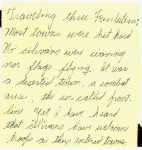 Traveling thru Fontalerni
Most towns were hit hard
No civilians were running
nor flags flying. It was
a deserted town, a combat
area the so-called front
line. Yet I have heard
that citizens have welcome
troops as they entered towns